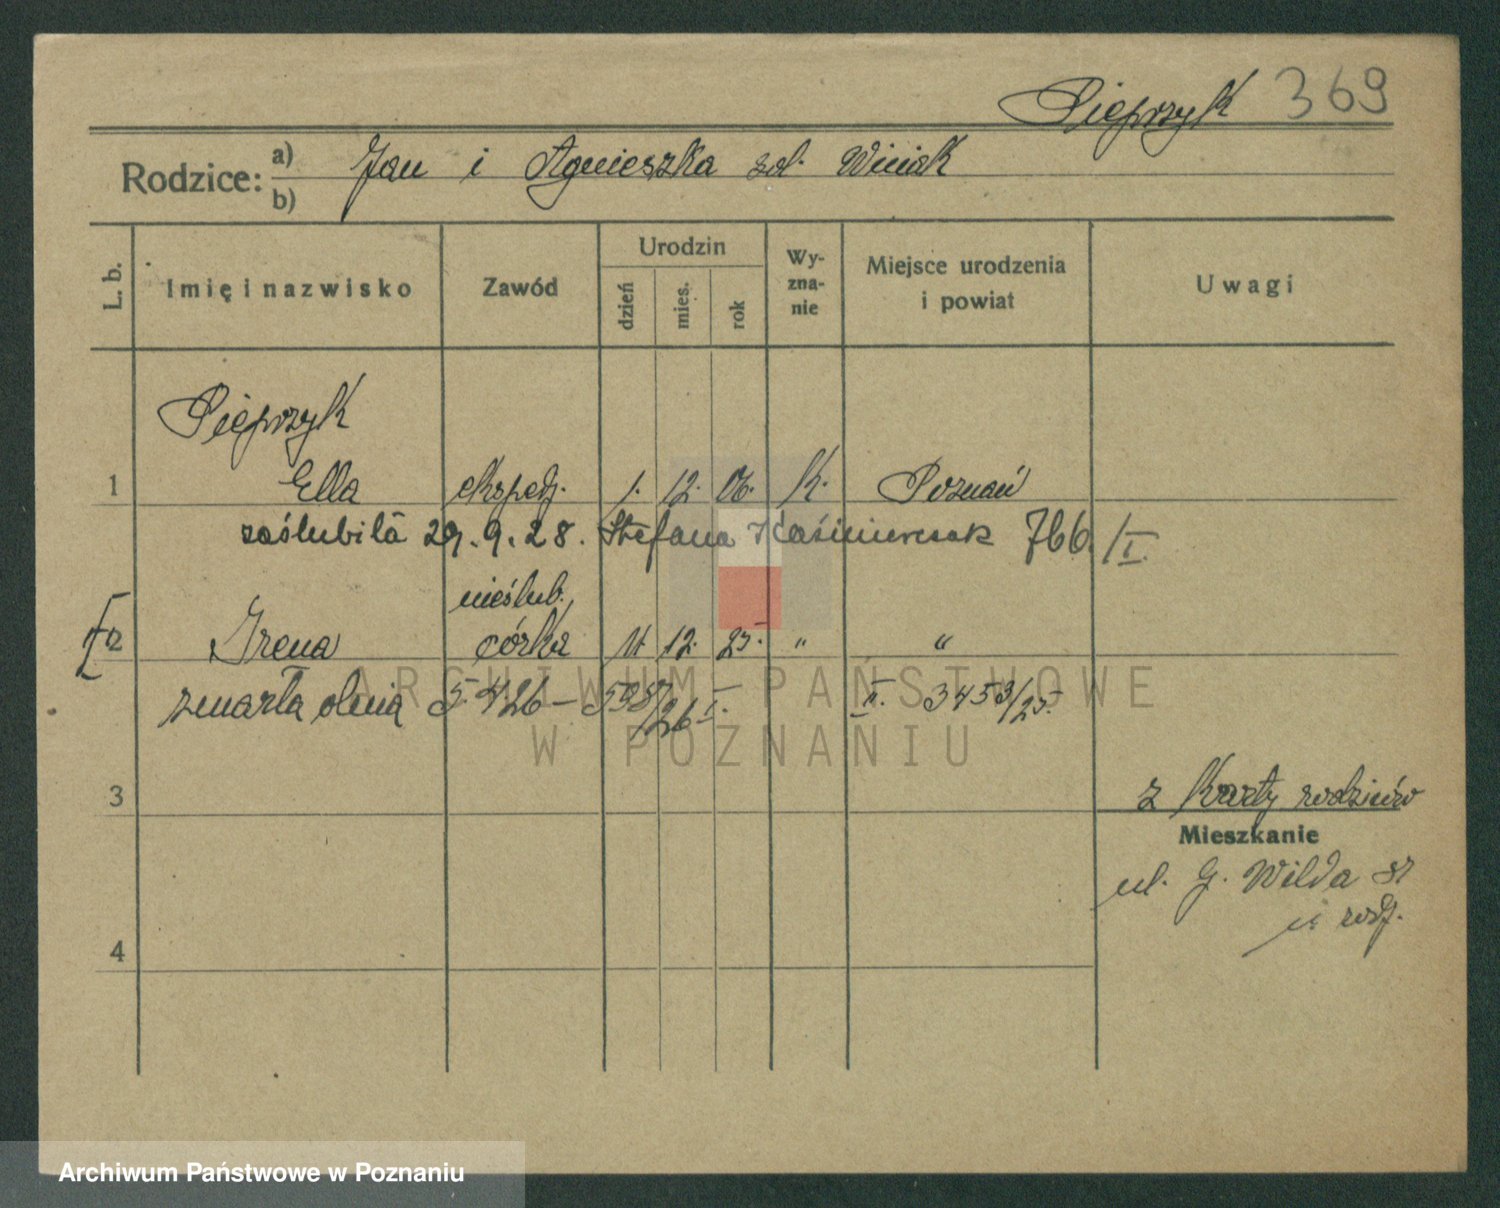 Pieprzyk 369
Rodzice: a) Jan i Agnieszka zd. Winiak
b)
L. b. Imię i nazwisko Zawód Urodzin dzień mies. rok Wyznanie Miejsce urodzenia i powiat Uwagi
Pieprzyk
1 Ella ekspedj. 1. 12. 06. K. Poznań
zaślubiła 29.9.28. Stefana Kaźmierczak 766/I.
nieślub.
2 Irena córka 12. 25. " "
zmarła dnia 5.4.26 – /26 I. II. 3453/25.
3
z Karty rodziców
Mieszkanie
ul. G. Wilda
u rodz.
4
ARCHIWUM PAŃSTWOWE
W POZNANIU
Archiwum Państwowe w Poznaniu